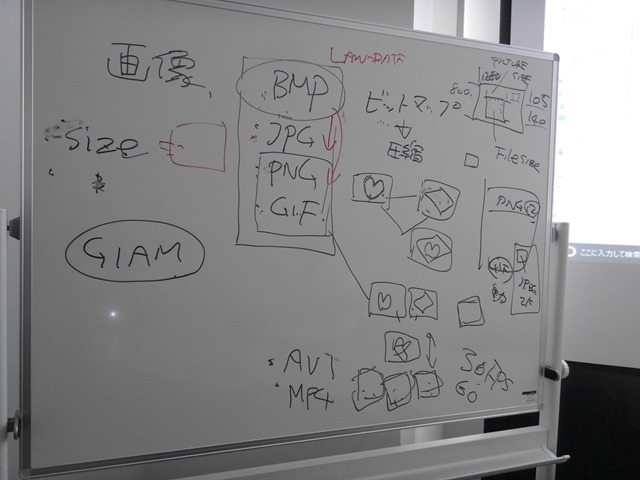 画像
Size
GIAM
LAW-DATA
BMP
JPG
PNG
GIF
ビットマップ
圧縮
PICTURE
SIZE
1280
800
105
140
File size
PNG
GIF
JPEG
AVI
MP4
30 FPS
60
ここに入力して検索